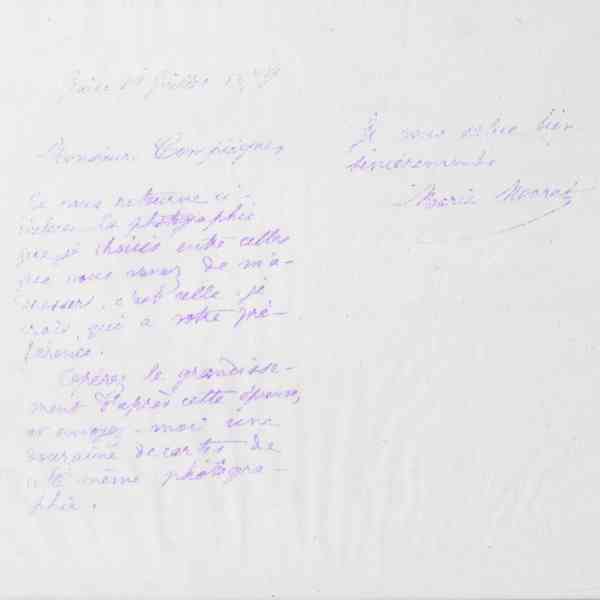 Juillet
Monsieur Compiègne,
Je vous retourne ci-
incluse la photographie
que je choisis entre celles
que vous venez de m'a-
dresser, c'est celle, je
crois, qui a votre pré-
férence.
Opérez le grandisse-
ment d'après cette épreuve,
et envoyez-moi une
douzaine de cartes de
cette même photogra-
phie.
Je vous salue bien
sincèrement
Marie